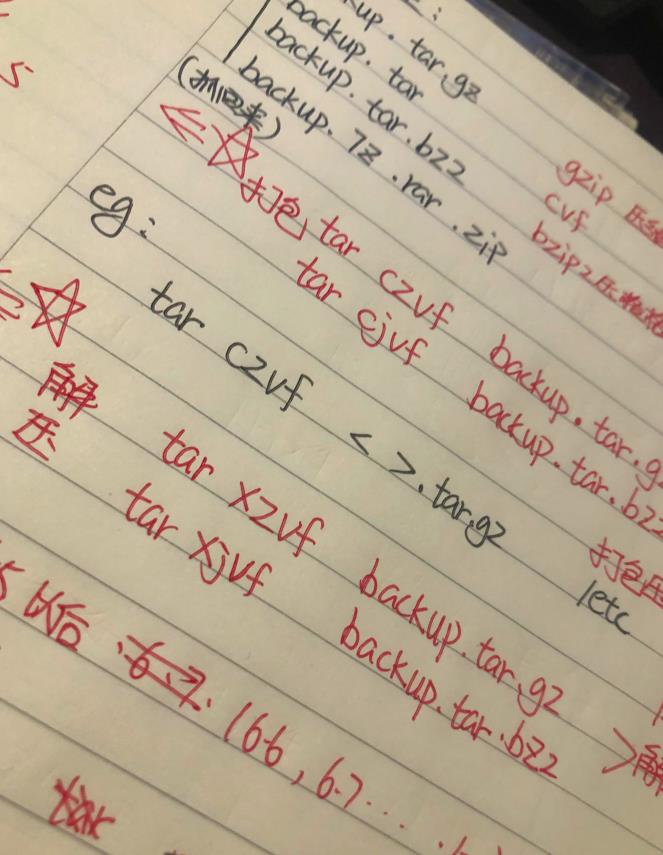 backup.tar.gz
backup.tar
backup.tar.bz2
backup.7z .rar .zip
gzip
cvf
bzip2
打包 tar czvf backup.tar.g
tar cjvf backup.tar.bz2
eg:
tar czvf < >.tar.gz /etc
打包压
解压
tar xzvf backup.tar.gz
tar xjvf backup.tar.bz2
解
5 以后 (6.6, 6.7....
tar
5